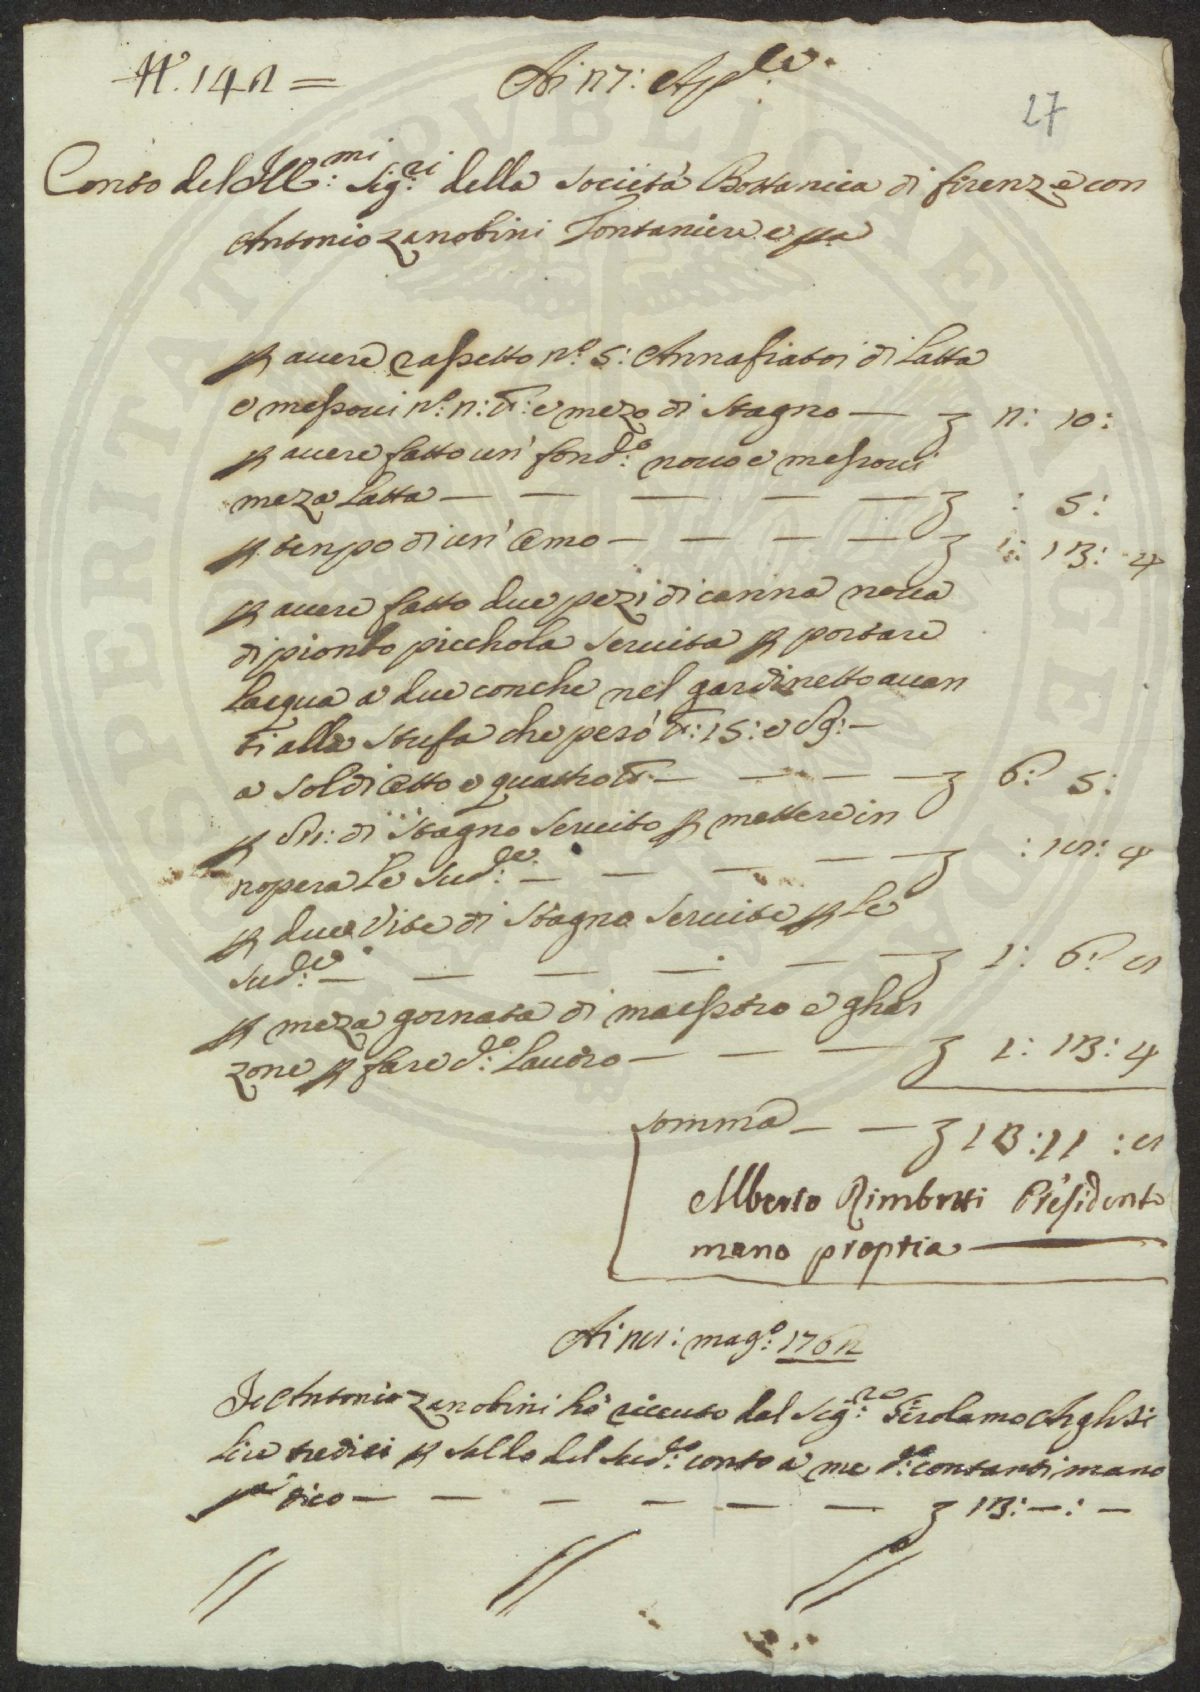 N. 142 =
Ai 27: Aple.
27
Conto del Ill:mi Sig:ri della Società Bottanica di firenze con
Antonio zanobini Fontaniere e pa
p avere rassetto no. 5: Annafiatoi di Latta
e messovi no: 2: e mezo di Stagno — — 2: 10:
p avere fatto un' fond:o novo e messovi
meza Latta — — — — — : 5:
p tenpo di un' Omo — — — — 1: 13: 4
p avere fatto due pezi di canna nova
di pionbo picchola Servita p portare
Lacqua a due conche nel gardinetto avan
ti alla Stufa che pesò : 15: e
a Soldi Otto e quattro — — — — 6: 5:
p di Stagno Servito p mettere in
nopera Le Sud:e — — — — : 12: 4
p due Vite di Stagno Servite p Le
Sud:e — — — — — 1: 6:
p meza gornata di maesstro e ghar
zone p fare d:o Lavoro — — — 1: 13: 4
Somma — — 13: 11 :
Alberto Rimbotti Presidente
mano propria
Ai 22: mag:o 1762
Io Antonio zanobini ho riceuto dal Sig:re Girolamo
Lire tredici p Saldo del Sud:o conto a me d:o contanti mano
pa dico — — — — — — 13: — : —